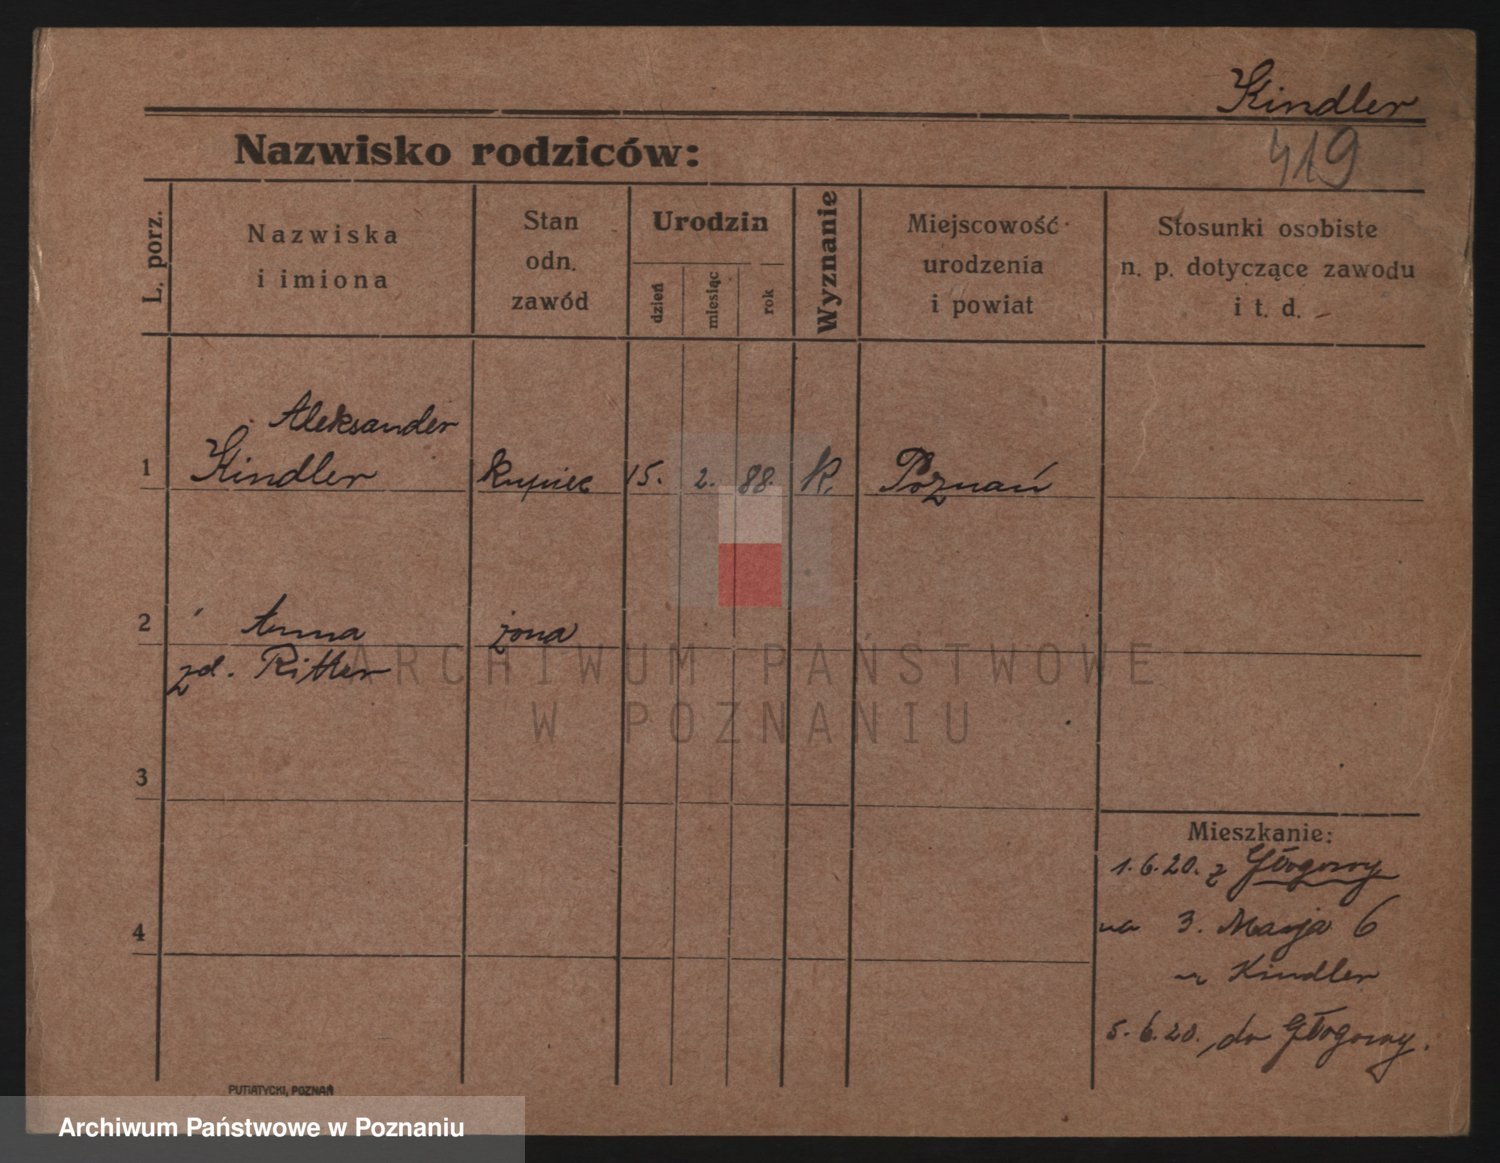 Kindler
419
Nazwisko rodziców:
L. porz.
Nazwiska
i imiona
Stan
odn.
zawód
Urodzin
dzień
miesiąc
rok
Wyznanie
Miejscowość
urodzenia
i powiat
Stosunki osobiste
n. p. dotyczące zawodu
i t. d.
Aleksander
1 Kindler kupiec 15. 2. 88. K. Poznań
2 Anna żona
zd. Ritter
ARCHIWUM PAŃSTWOWE
W POZNANIU
3
4
Mieszkanie:
1.6.20. z Głogowy
na 3. Maja 6
u Kindler
5.6.20. do Głogowy.
PUTIATYCKI, POZNAŃ
Archiwum Państwowe w Poznaniu